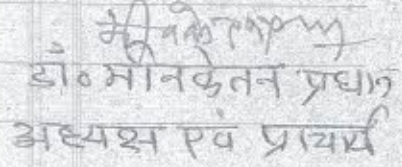 डॉ० मीनकेतन प्रधान
अध्यक्ष एवं प्राचार्य